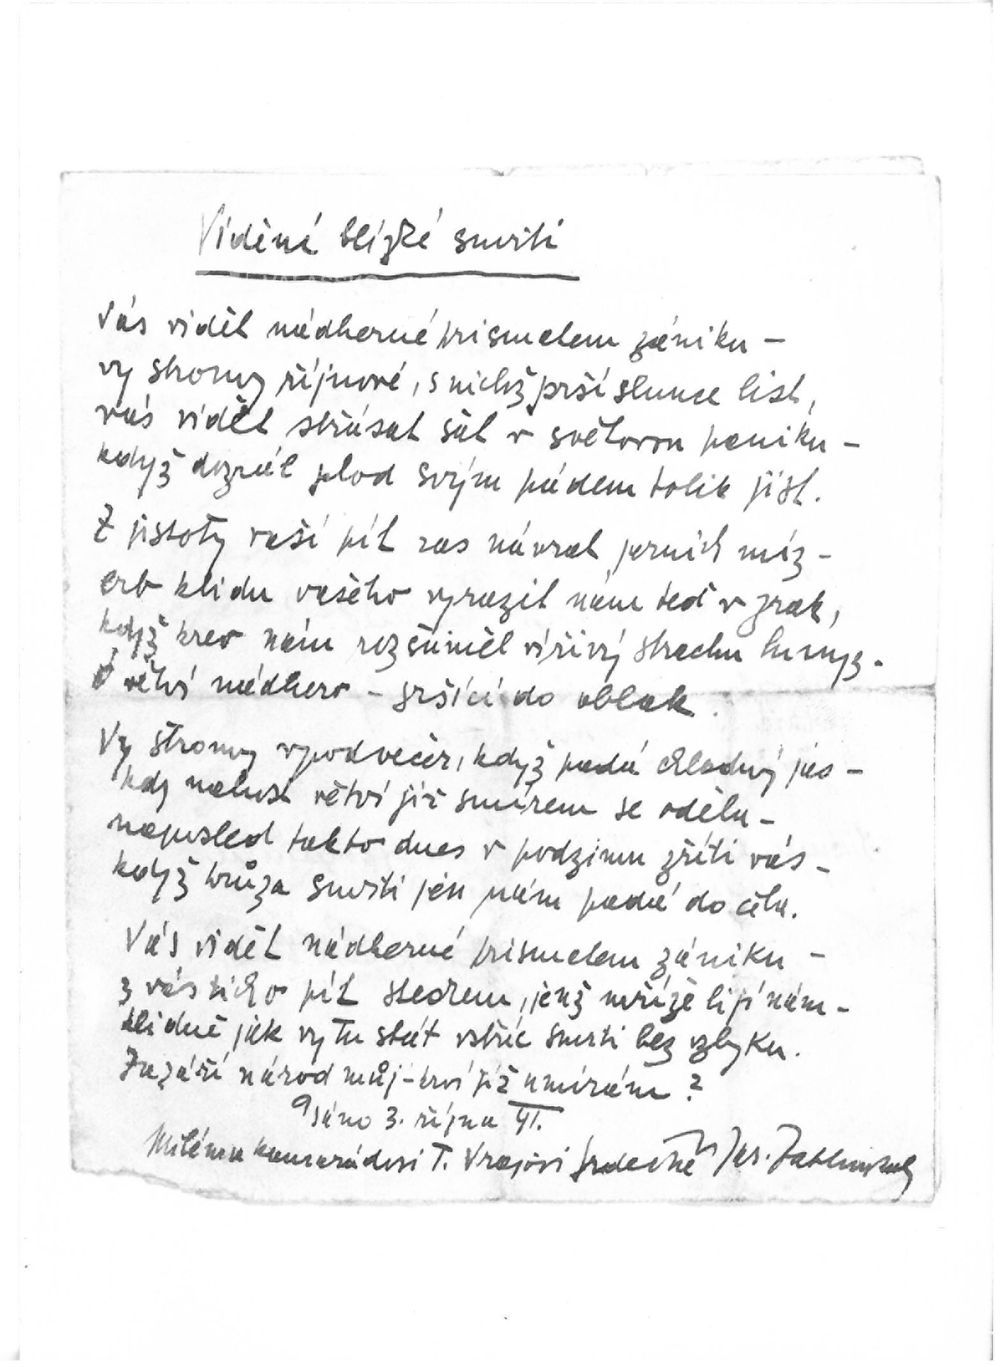 Vidění blízké smrti
Vás viděl nádherné prismatem zániku –
vy stromy říjnové, s nichž prší slunce list,
vás viděl střásat šat v světovou paniku –
když dozrál plod svým pádem tolik jist.
Z jistoty vaší pít zas návrat jarních míz –
erb klidu vašeho vyrazil nám teď v zrak,
když krev nám rozšuměl vířivý strachu hmyz.
Ó větví nádhero – sršící do oblak.
Vy stromy vpodvečer, když padá chladný jas –
kdy nahost větví již smírem se odělu –
naposled takto dnes v podzimu zříti vás –
když hrůza smrti jen nám padá do čela.
Vás viděl nádherné prismatem zániku –
z vás ticho pít středem, jenž mříže lije nám –
klidně jak vy tu stát vstříc smrti bez vzlyku.
Zazáří národ můj – krví již umírám?
Psáno 3. října 41.
Milému kamarádovi T. Vrajovi srdečně Jar. Zatloukal